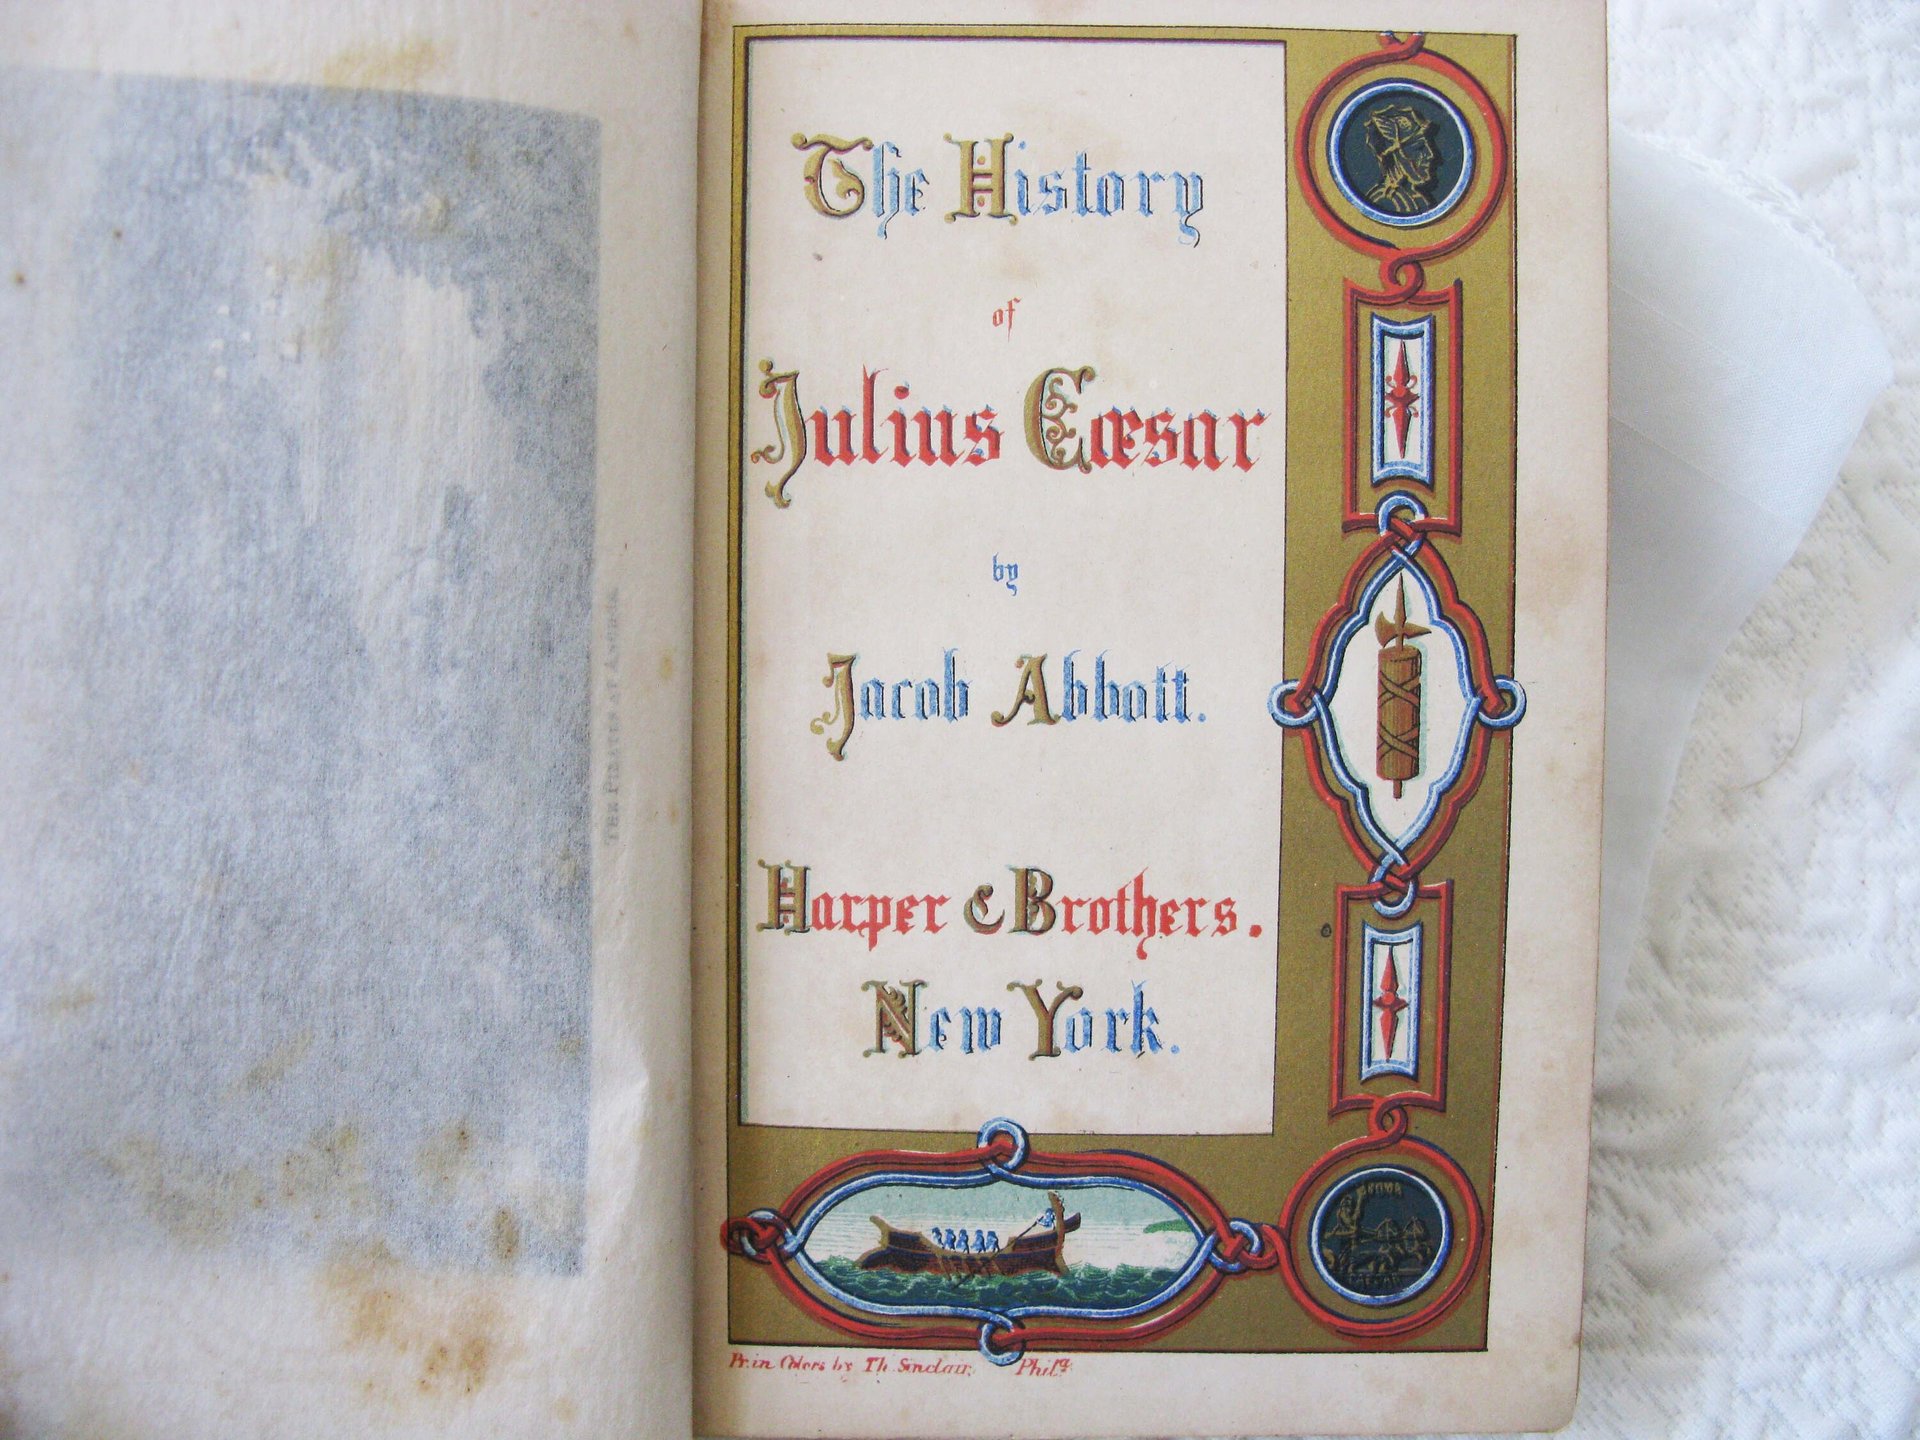 THE PIRATES AT ANCHOR.
The History
of
Julius Cæsar
by
Jacob Abbott.
Harper & Brothers.
New York.
CAESAR
Pr. in Colors by Th. Sinclair, Phil<sup>a</sup>.